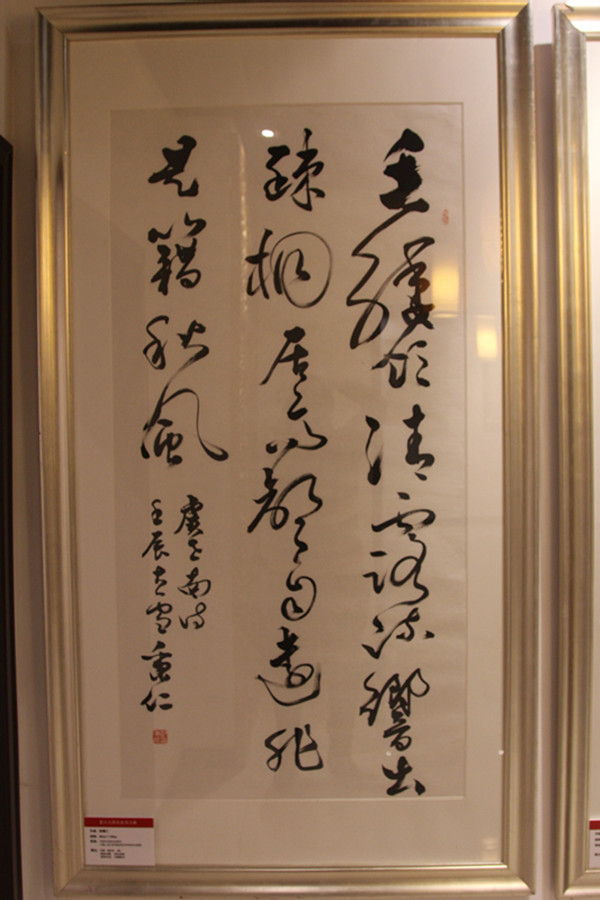 垂緌飲清露流響出
疎桐居高聲自遠非
是籍秋風
虞世南詩
壬辰大雪 仁